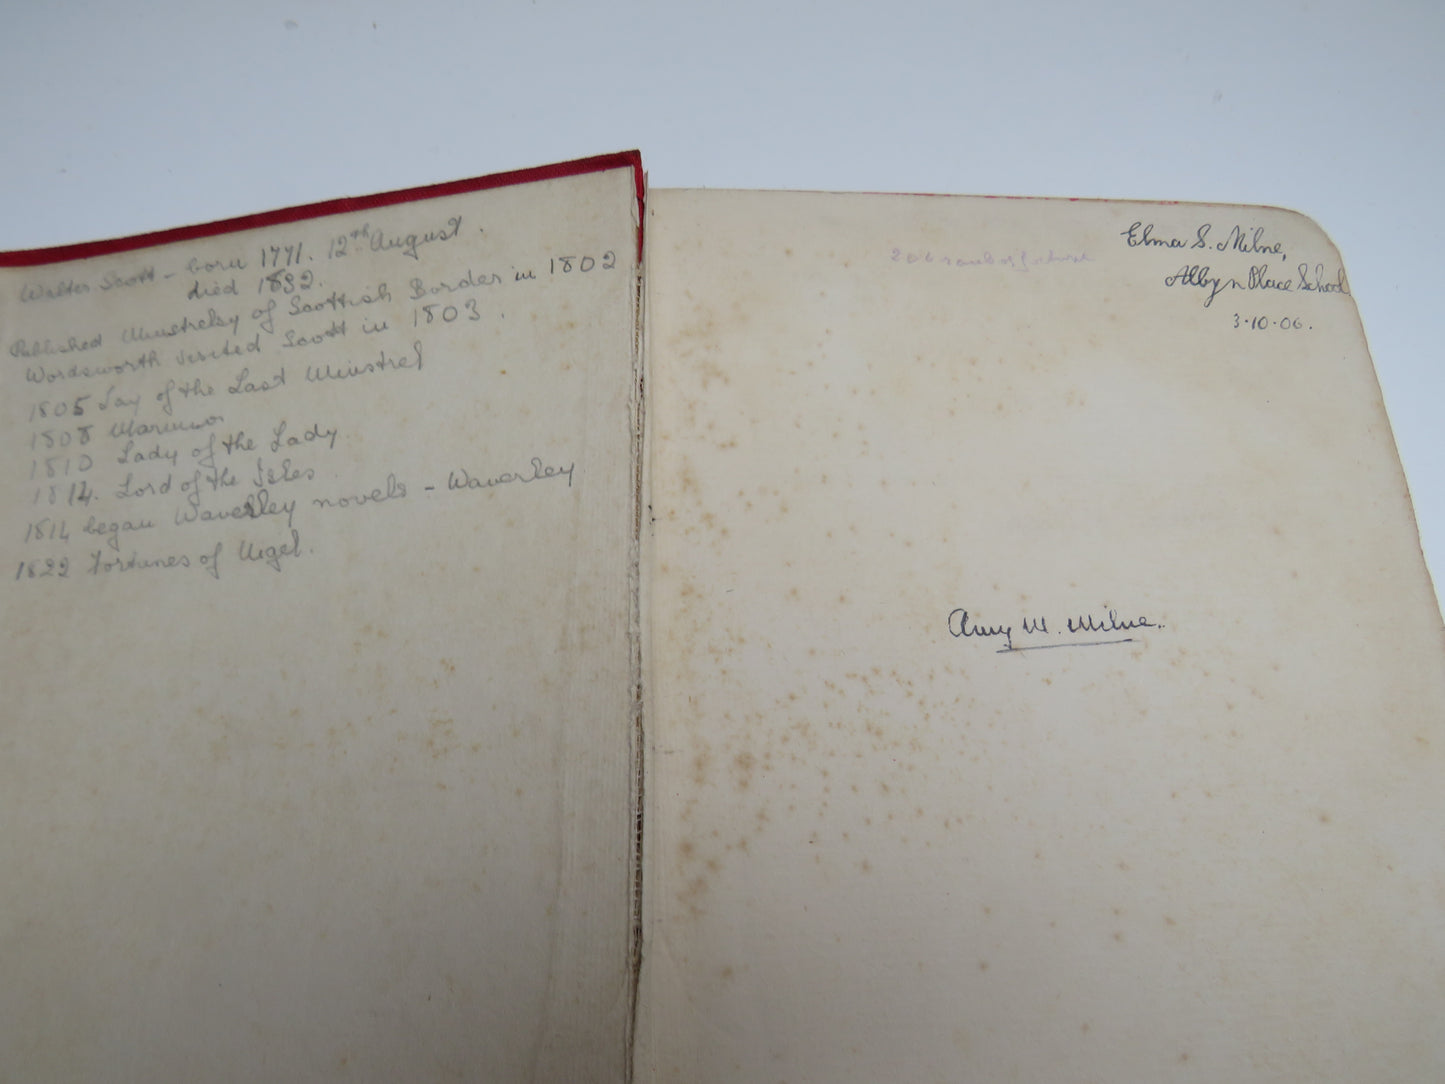 Walter Scott - born 1771. 12th August.
died 1832.
Published Minstrelsy of Scottish Border in 1802
Wordsworth visited Scott in 1803.
1805 Lay of the Last Minstrel
1808 Marmion
1810 Lady of the Lady
1814. Lord of the Isles.
1814 began Waverley novels - Waverley
1822 Fortunes of Nigel.
Elma S. Milne,
Albyn Place School
3.10.06.
Amy M. Milne.